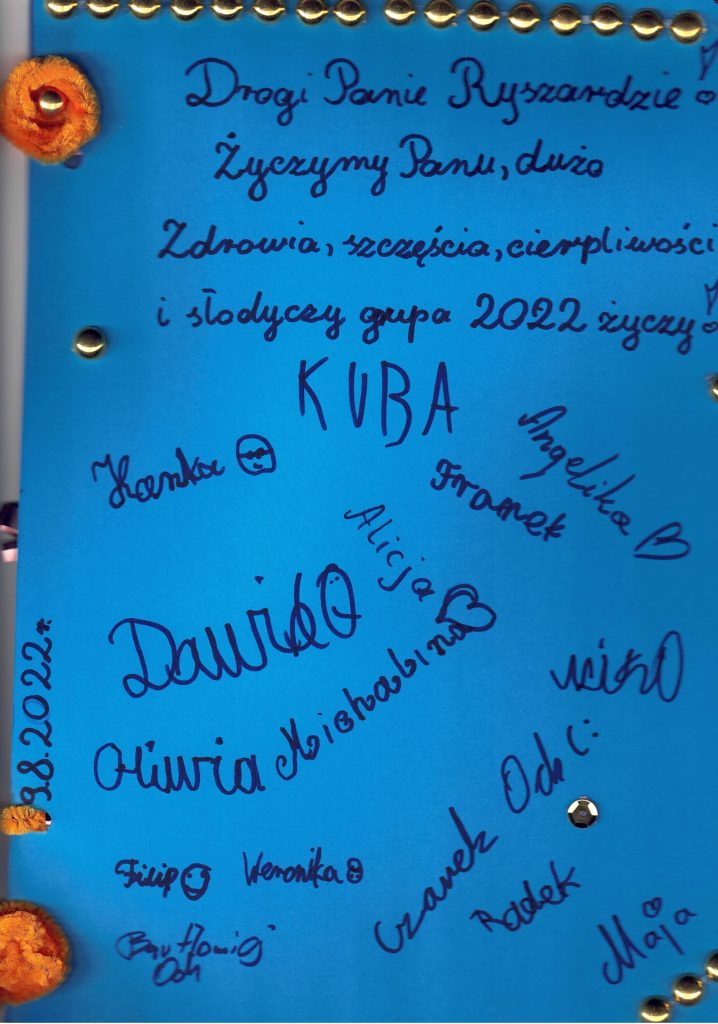 Drogi Panie Ryszardzie!
Życzymy Panu, dużo
Zdrowia, szczęścia, cierpliwości
i słodyczy grupa 2022 życzy!
KUBA
Hanka
Angelika
Franek
Alicja
Dawid
Michalina
Oliwia
Miko
Och (:
Czarek
Radek
Maja
Filip
Weronika
Bartłomiej
Och
9.8.2022r.